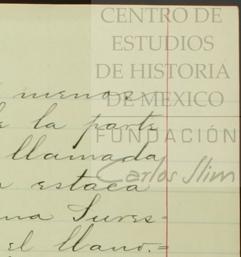 CENTRO DE
ESTUDIOS
DE HISTORIA
DE MEXICO
FUNDACIÓN
Carlos Slim
menos
la parte
llamada
estaca
el llano.=